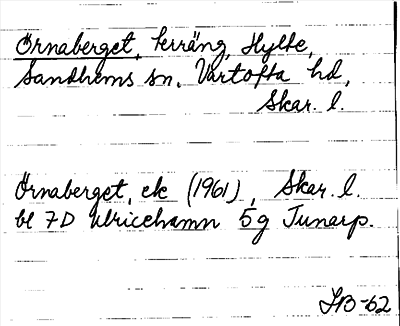 Örnaberget, terräng, Hylte,
Sandhems sn, Vartofta hd,
Skar. l.
Örnaberget, ek (1961), Skar. l.
bl 7D Ulricehamn 5g Tunarp.
IB-62